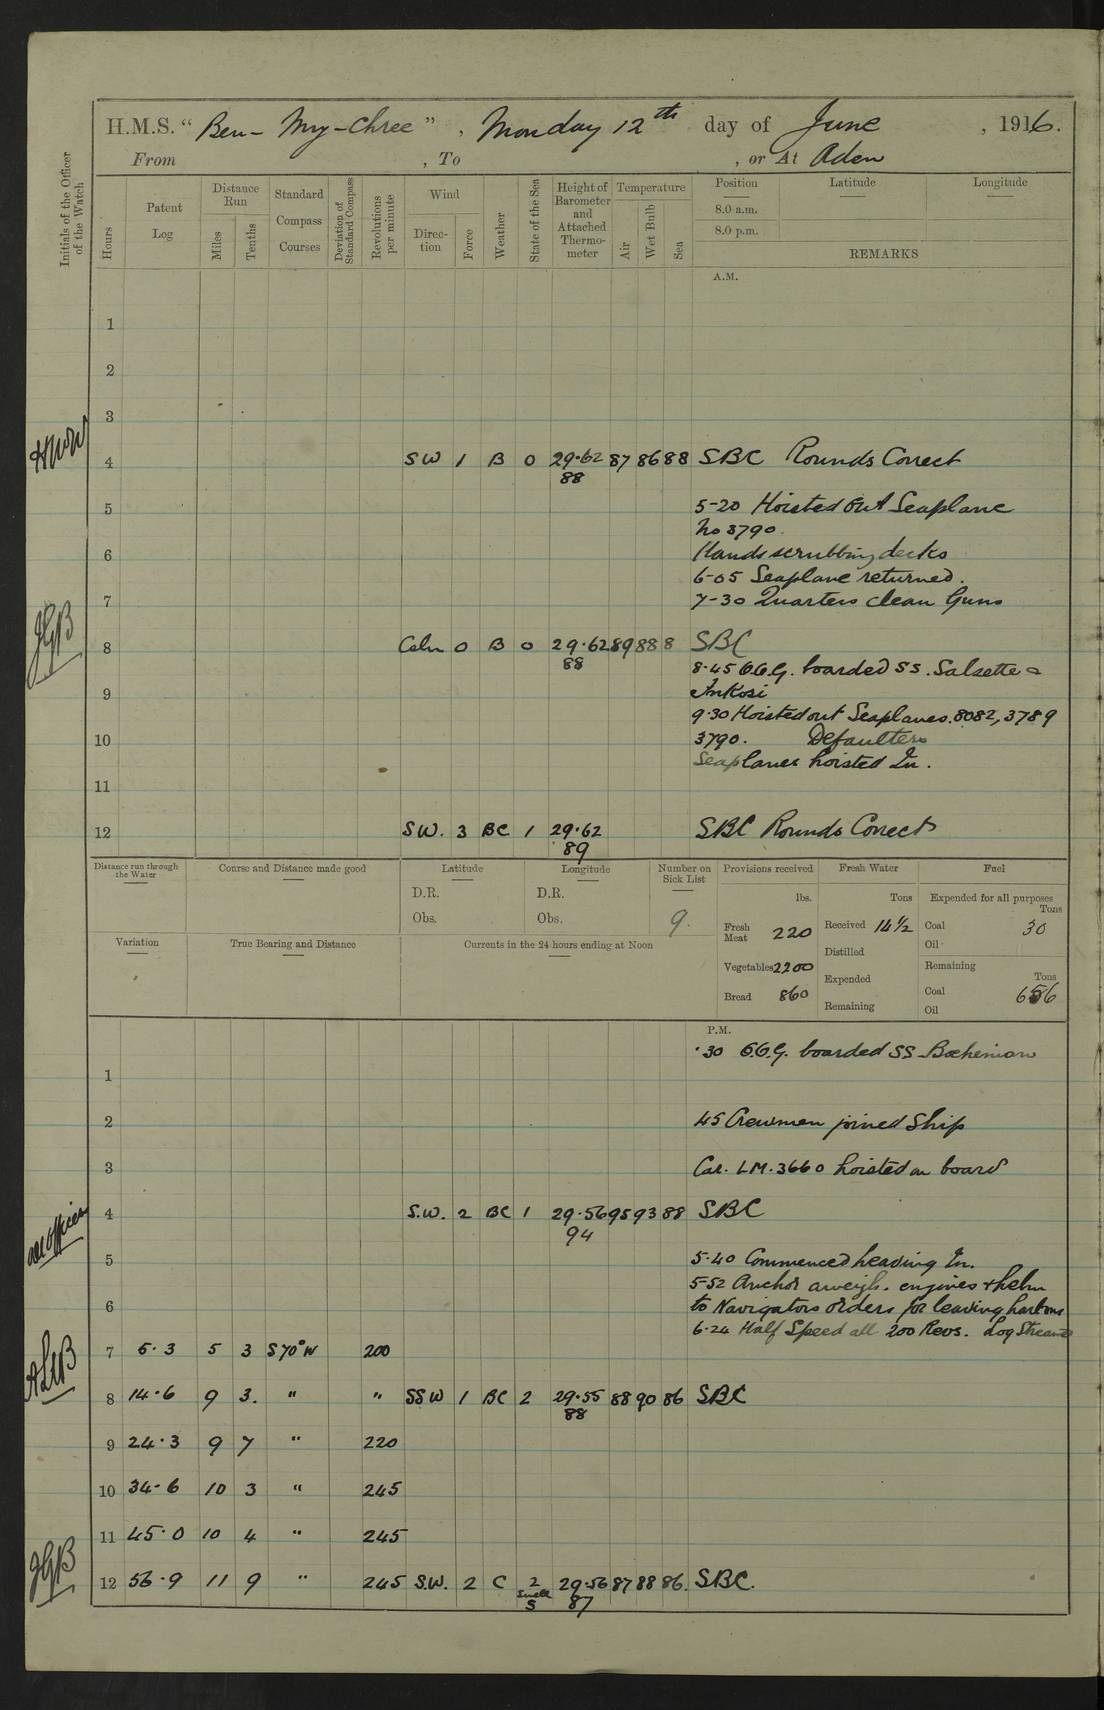 H.M.S. “ Ben-My-Chree ” , Monday 12th day of June , 1916.
From , To , or At Aden
Initials of the Officer of the Watch
Hours
Patent Log
Distance Run
Miles
Tenths
Standard Compass Courses
Deviation of Standard Compass
Revolutions per minute
Wind
Direction
Force
Weather
State of the Sea
Height of Barometer and Attached Thermometer
Temperature
Air
Wet Bulb
Sea
Position Latitude Longitude
8.0 a.m.
8.0 p.m.
REMARKS
A.M.
1
2
3
4 SW 1 B 0 29.62 87 86 88 SBC Rounds Correct
88
5 5-20 Hoisted Out Seaplane
No 3790
6 Hands scrubbing decks
6-05 Seaplane returned.
7 7-30 Quarters clean Guns
JGB
8 Calm 0 B 0 29.62 89 88 8 SBC
88
8.45 O.O.G. boarded SS. Salsette &
9 Inkosi
9.30 Hoisted out Seaplanes. 8082, 3789
10 3790. Defaulters
Seaplanes hoisted In.
11
12 SW. 3 BC 1 29.62 SBC Rounds Correct
89
Distance run through the Water
Course and Distance made good
Latitude
D.R.
Obs.
Longitude
D.R.
Obs.
Number on Sick List
9.
Provisions received
lbs.
Fresh Meat 220
Vegetables 2200
Bread 860
Fresh Water
Tons
Received 14 1/2
Distilled
Expended
Remaining
Fuel
Expended for all purposes
Tons
Coal 30
Oil
Remaining
Tons
Coal 656
Oil
Variation
True Bearing and Distance
Currents in the 24 hours ending at Noon
P.M.
.30 O.O.G. boarded SS Bohemian
1
2 45 Crewmen joined Ship
3 Car. LM. 3660 hoisted on board
4 S.W. 2 BC 1 29.56 95 93 88 SBC
94
5 5.40 Commenced heaving In.
5-52 Anchor aweigh. engines & helm
6 to Navigators orders for leaving harbour
6.24 Half Speed all 200 Revs. Log Streamed
7 5.3 5 3 S70°W 200
8 14.6 9 3. " " SSW 1 BC 2 29.55 88 90 86 SBC
88
9 24.3 9 7 " 220
10 34.6 10 3 " 245
11 45.0 10 4 " 245
JGB
12 56.9 11 9 " 245 S.W. 2 C 2 29.56 87 88 86. SBC.
Swell
S 87